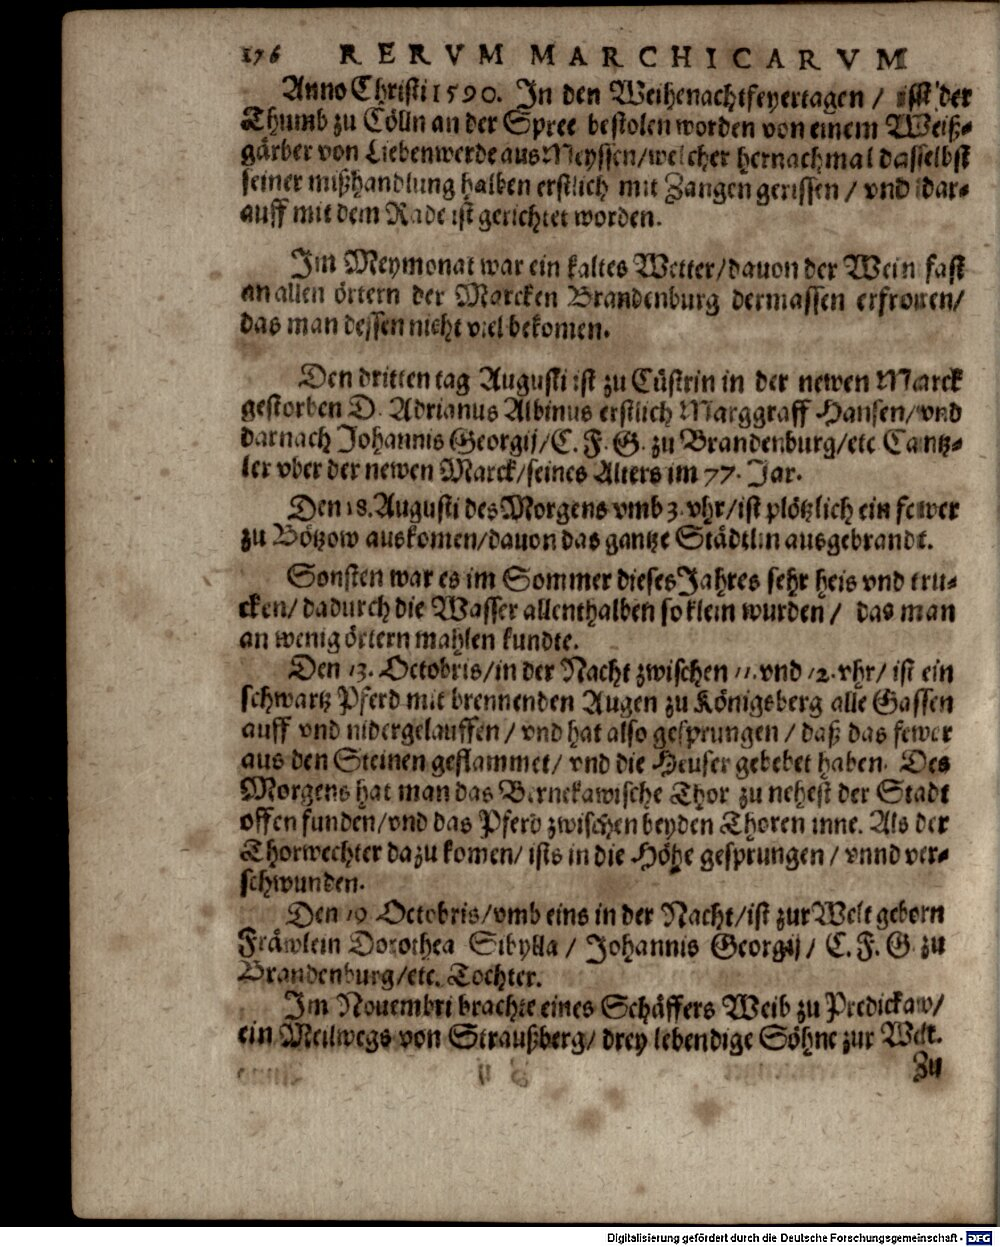 176 RERVM MARCHICARVM
Anno Christi 1590. In den Weihenachtfeyertagen / ist der
Thumb zu Cölln an der Spree bestolen worden von einem Weiß-
gärber von Liebenwerde aus Meyssen/welcher hernachmal dasselbst
seiner mißhandlung halben erstlich mit Zangen gerissen / vnd dar-
auff mit dem Rade ist gerichtet worden.
Im Meymonat war ein kaltes Wetter/dauon der Wein fast
an allen örtern der Marcken Brandenburg dermassen erfroren/
das man dessen nicht viel bekomen.
Den dritten tag Augusti ist zu Cüstrin in der newen Marck
gestorben D. Adrianus Albinus erstlich Marggraff Hansen/vnd
darnach Johannis Georgij/C. F. G. zu Brandenburg/etc Cantz-
ler vber der newen Marck/seines Alters im 77. Jar.
Den 18. Augusti des Morgens vmb 3. vhr/ist plötzlich ein fewer
zu Bötzow auskomen/dauon das gantze Städtlin ausgebrandt.
Sonsten war es im Sommer dieses Jahres sehr heis vnd tru-
cken/ dadurch die Wasser allenthalben so klein wurden / das man
an wenig örtern mahlen kundte.
Den 13. Octobris/in der Nacht zwischen 11. vnd 12. vhr/ ist ein
schwartz Pferd mit brennenden Augen zu Königsberg alle Gassen
auff vnd nidergelauffen / vnd hat also gesprungen / daß das fewer
aus den Steinen geflammet/ vnd die Heuser gebebet haben. Des
Morgens hat man das Bernekawische Thor zu nehest der Stadt
offen funden/vnd das Pferd zwischen beyden Thoren inne. Als der
Thorwechter dazu komen/ ists in die Höhe gesprungen / vnnd ver-
schwunden.
Den 19 Octobris/vmb eins in der Nacht/ist zur Welt geborn
Fräwlein Dorothea Sibylla / Johannis Georgij/ C. F. G. zu
Brandenburg/etc. Tochter.
Im Nouembri brachte eines Schäffers Weib zu Predickaw/
ein Meilwegs von Straußberg/ drey lebendige Söhne zur Welt.
Zu
Digitalisierung gefördert durch die Deutsche Forschungsgemeinschaft - DFG